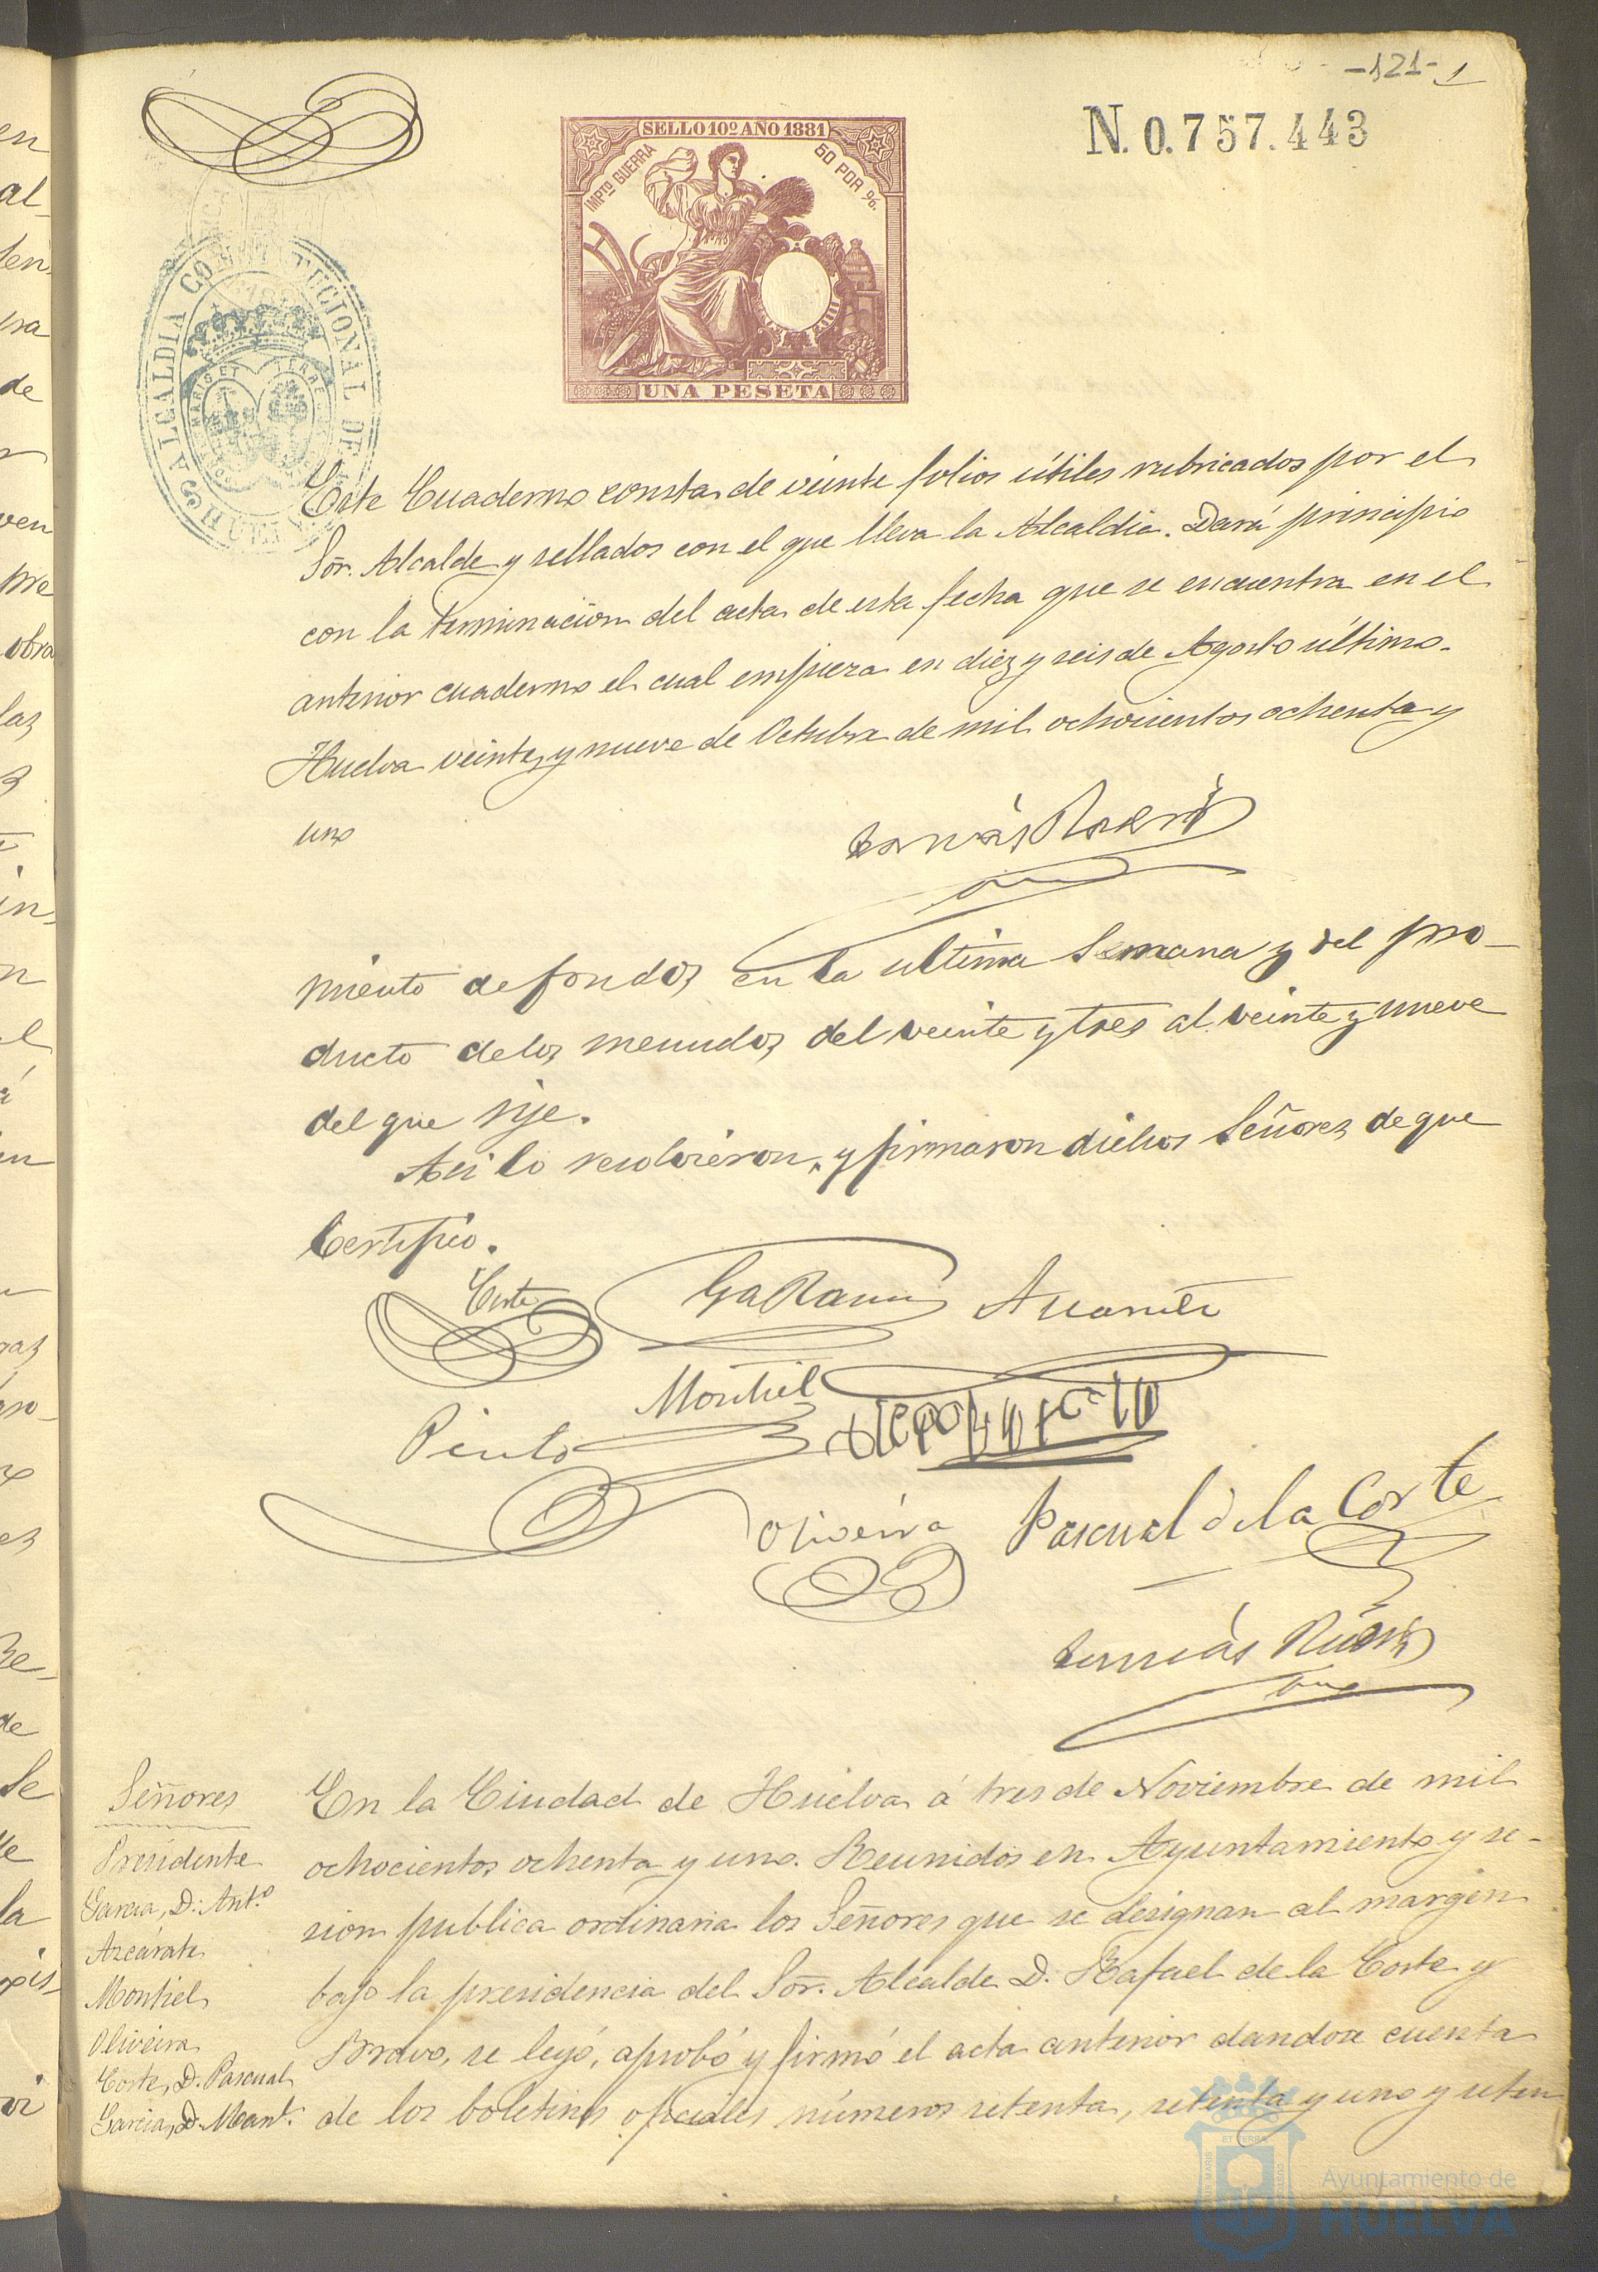 -121- 1
N. 0.757.443
SELLO 10º AÑO 1881
IMPTO GUERRA
50 POR %.
UNA PESETA
ALCALDIA CONSTITUCIONAL DE HUELVA
Este Cuaderno consta de veinte folios útiles rubricados por el
Sôr. Alcalde y sellados con el que lleva la Alcaldía. Dará principio
con la terminación del acta de esta fecha que se encuentra en el
anterior cuaderno el cual empieza en diez y seis de Agosto último.
Huelva veinte y nueve de Octubre de mil ochocientos ochenta y
uno
miento de fondos en la ultima Semana y del pro-
ducto de los menudos del veinte y tres al veinte y nueve
del que rije.
Asi lo resolvieron, y firmaron dichos Señores de que
Certifico.
Corte
Azcarate
Montiel
Pinto
Oliveira
Pascual de la Corte
Tomás
Señores
Presidente
Garcia, D. Antº
Azcárate
Montiel
Oliveira
Corte, D. Pascual
Garcia, D. Manl.
En la Ciudad de Huelva á tres de Noviembre de mil
ochocientos ochenta y uno. Reunidos en Ayuntamiento y se-
sion publica ordinaria los Señores que se designan al margen
bajo la presidencia del Sôr. Alcalde D. Rafael de la Corte y
Bravo, se leyó, aprobó y firmó el acta anterior dandose cuenta
de los boletines oficiales números setenta, setenta y uno y seten
Ayuntamiento de
HUELVA